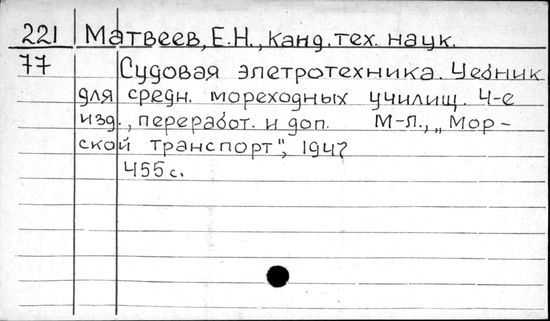 221 Матвеев, Е.Н., канд. тех. наук.
77 Судовая элетротехника. Уебник
для средн. мореходных училищ. 4-е
изд., переработ. и доп. М-Л., „Мор-
ской транспорт", 1947
455 с.